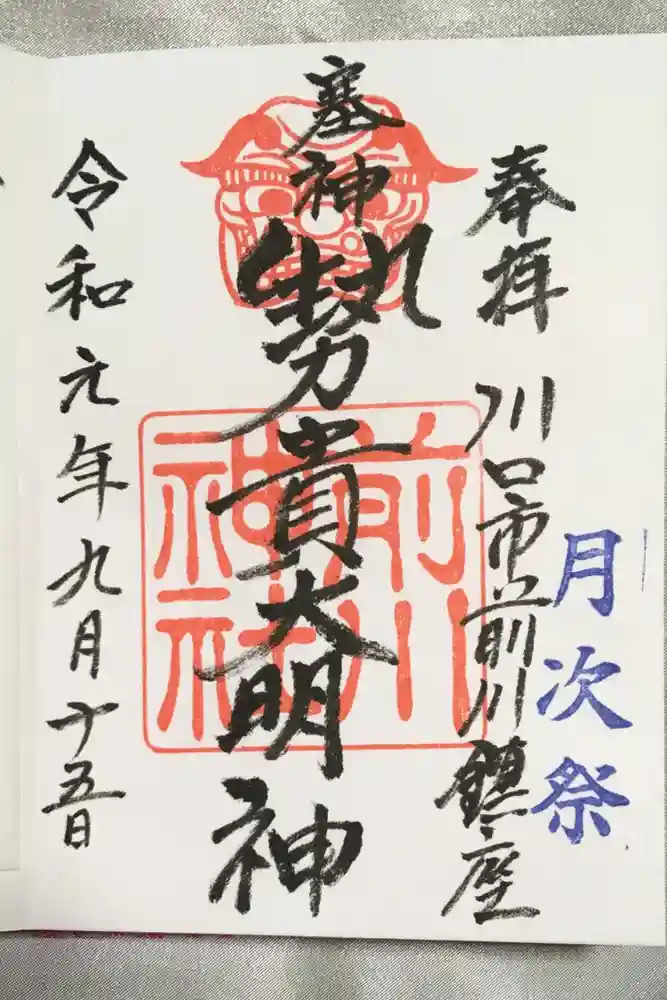 月次祭
奉拝 川口市前川鎮座
塞神
勢貴大明神
前川神社
令和元年九月十五日